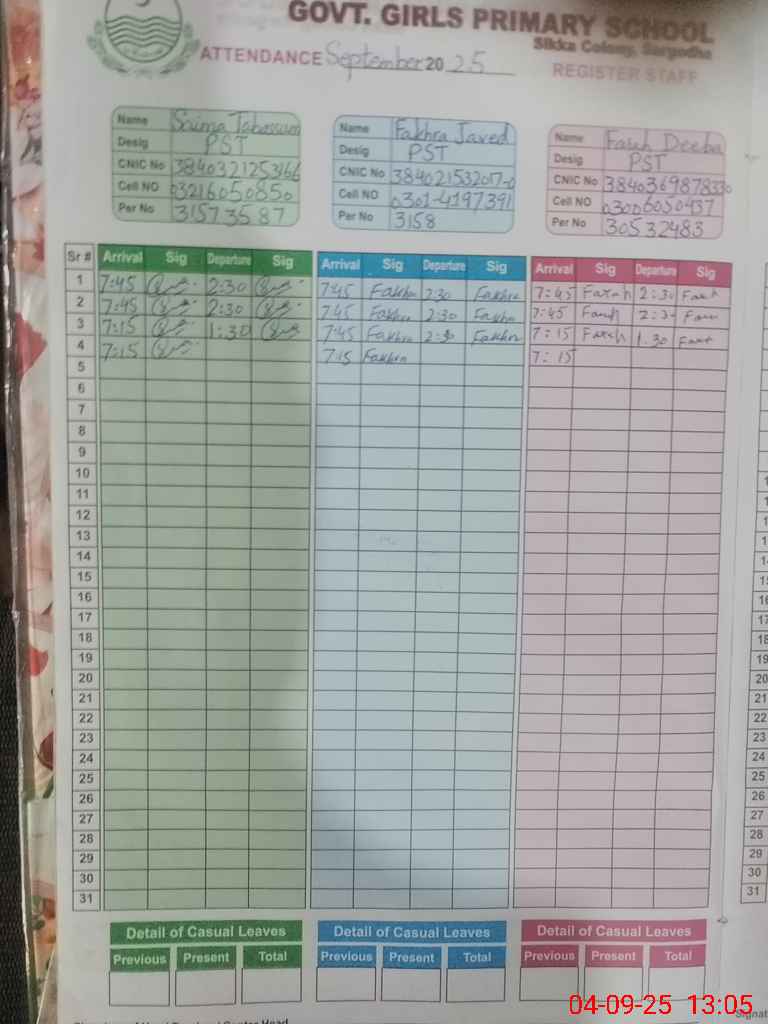 GOVT. GIRLS PRIMARY SCHOOL
Sikka Colony, Sargodha
ATTENDANCE September 2025
REGISTER STAFF
Name Saima Tabassum
Desig PST
CNIC No 3840321253166
Cell NO 03216050850
Per No 31573587
Name Fakhra Javed
Desig PST
CNIC No 384021532017-0
Cell NO 0301-4197391
Per No 3158
Name Farah Deeba
Desig PST
CNIC No 3840369878330
Cell NO 03006050437
Per No 30532483
Sr # Arrival Sig Departure Sig Arrival Sig Departure Sig Arrival Sig Departure Sig
1 7:45 2:30 7:45 Fakhra 2:30 Fakhra 7:45 Farah 2:30 Farah
2 7:45 2:30 7:45 Fakhra 2:30 Fakhra 7:45 Farah 2:30 Farah
3 7:15 1:30 7:45 Fakhra 2:30 Fakhra 7:15 Farah 1.30 Farah
4 7:15 7:15 Fakhra 7:15
5
6
7
8
9
10
11
12
13
14
15
16
17
18
19
20
21
22
23
24
25
26
27
28
29
30
31
Detail of Casual Leaves Detail of Casual Leaves Detail of Casual Leaves
Previous Present Total Previous Present Total Previous Present Total
04-09-25 13:05